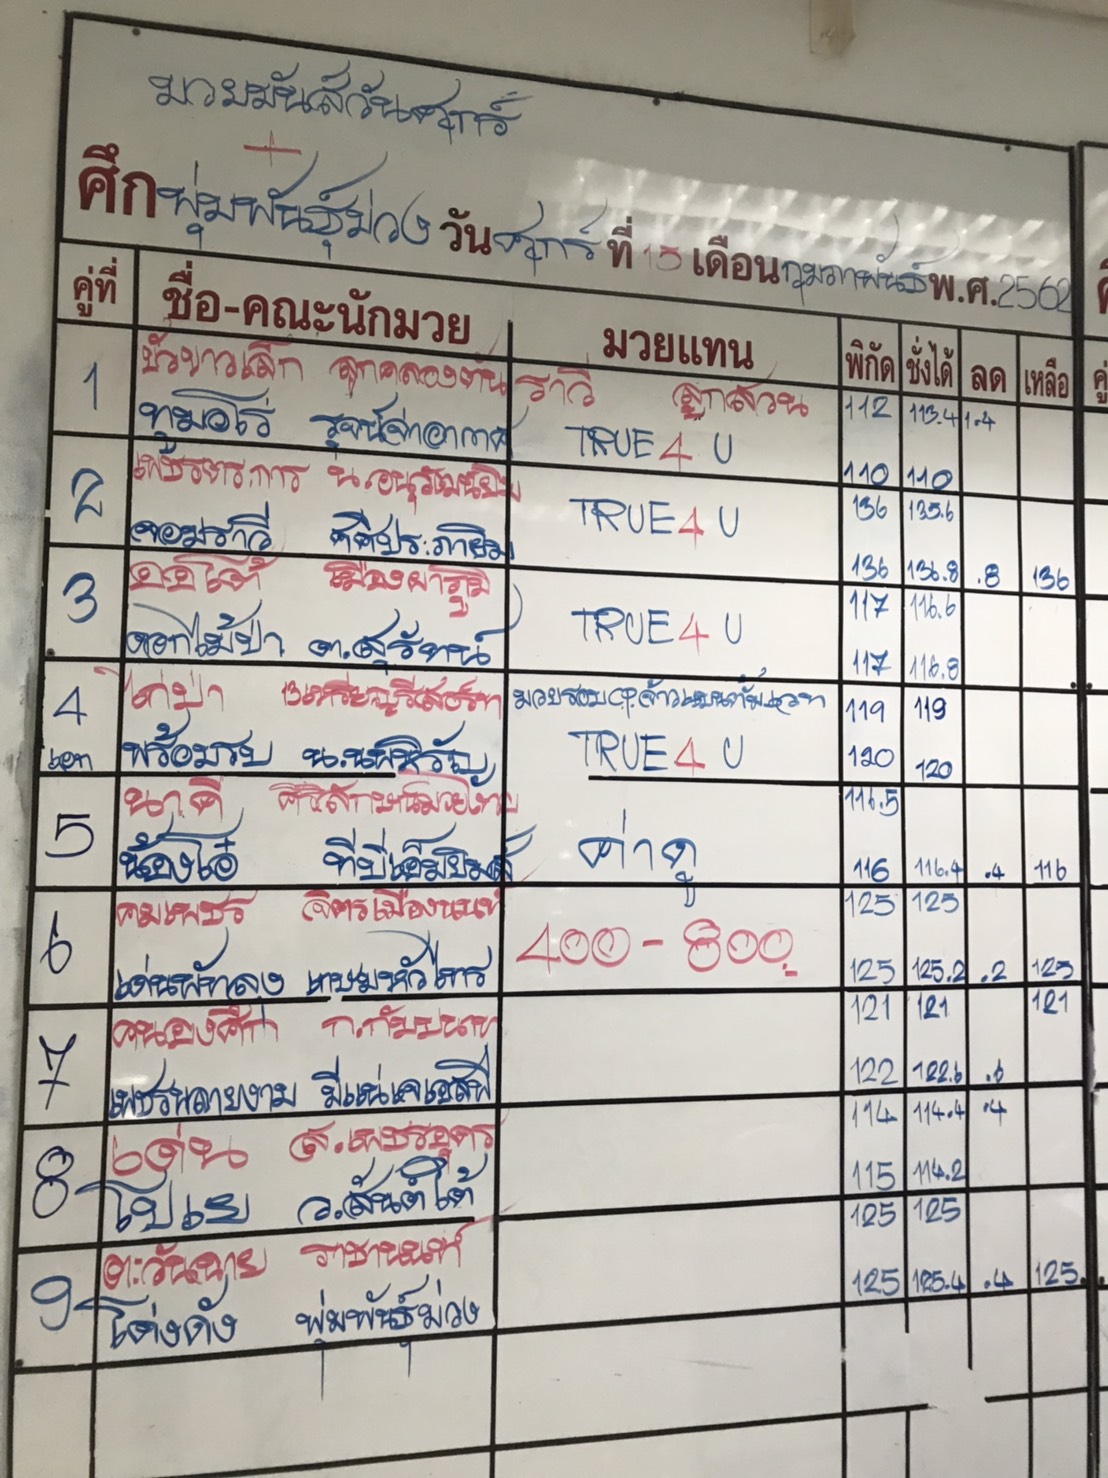 มวยมันส์วันศุกร์
+
ศึกพุ่มพันธุ์ม่วง วันศุกร์ ที่ 15 เดือนกุมภาพันธ์ พ.ศ.2562
คู่ที่ ชื่อ-คณะนักมวย มวยแทน พิกัด ชั่งได้ ลด เหลือ
1 บัวขาวเล็ก ลูกคลองตัน ราวี ลูกสวน 112 113.4 1.4
ทูมอโร่ TRUE4U 110 110
2 136 135.6
จอมราวี TRUE4U 136 136.8 .8 136
3 เมืองผาภูมิ 117 116.6
ดอกไม้ป่า ต.สุรัตน์ TRUE4U 117 116.8
4 ไก่ป่า 13เหรียญรีสอร์ท มวยรอบ 119 119
เอก พร้อมรบ TRUE4U 120 120
5 นาคี 116.5
น้องโอ๋ ทีบีเอ็มยิมส์ ค่าดู 116 116.4 .4 116
6 คมเพชร จิตรเมืองนนท์ 125 125
เด่นพัทลุง 400-800.- 125 125.2 .2 125
7 ก.กัมปนาท 121 121 121
เพชรพลายงาม มีแน่เคเอสพี 122 122.6 .6
8 เด่น ส.เพชรอุดร 114 114.4 .4
โบเย ว.สันต์ใต้ 115 114.2
9 ตะวันฉาย ราชานนท์ 125 125
โด่งดัง พุ่มพันธุ์ม่วง 125 125.4 .4 125